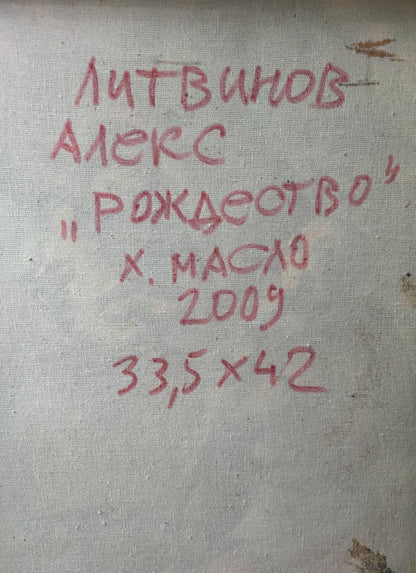 ЛИТВИНОВ
АЛЕКС
„РОЖДЕСТВО"
Х. МАСЛО
2009
33,5×42